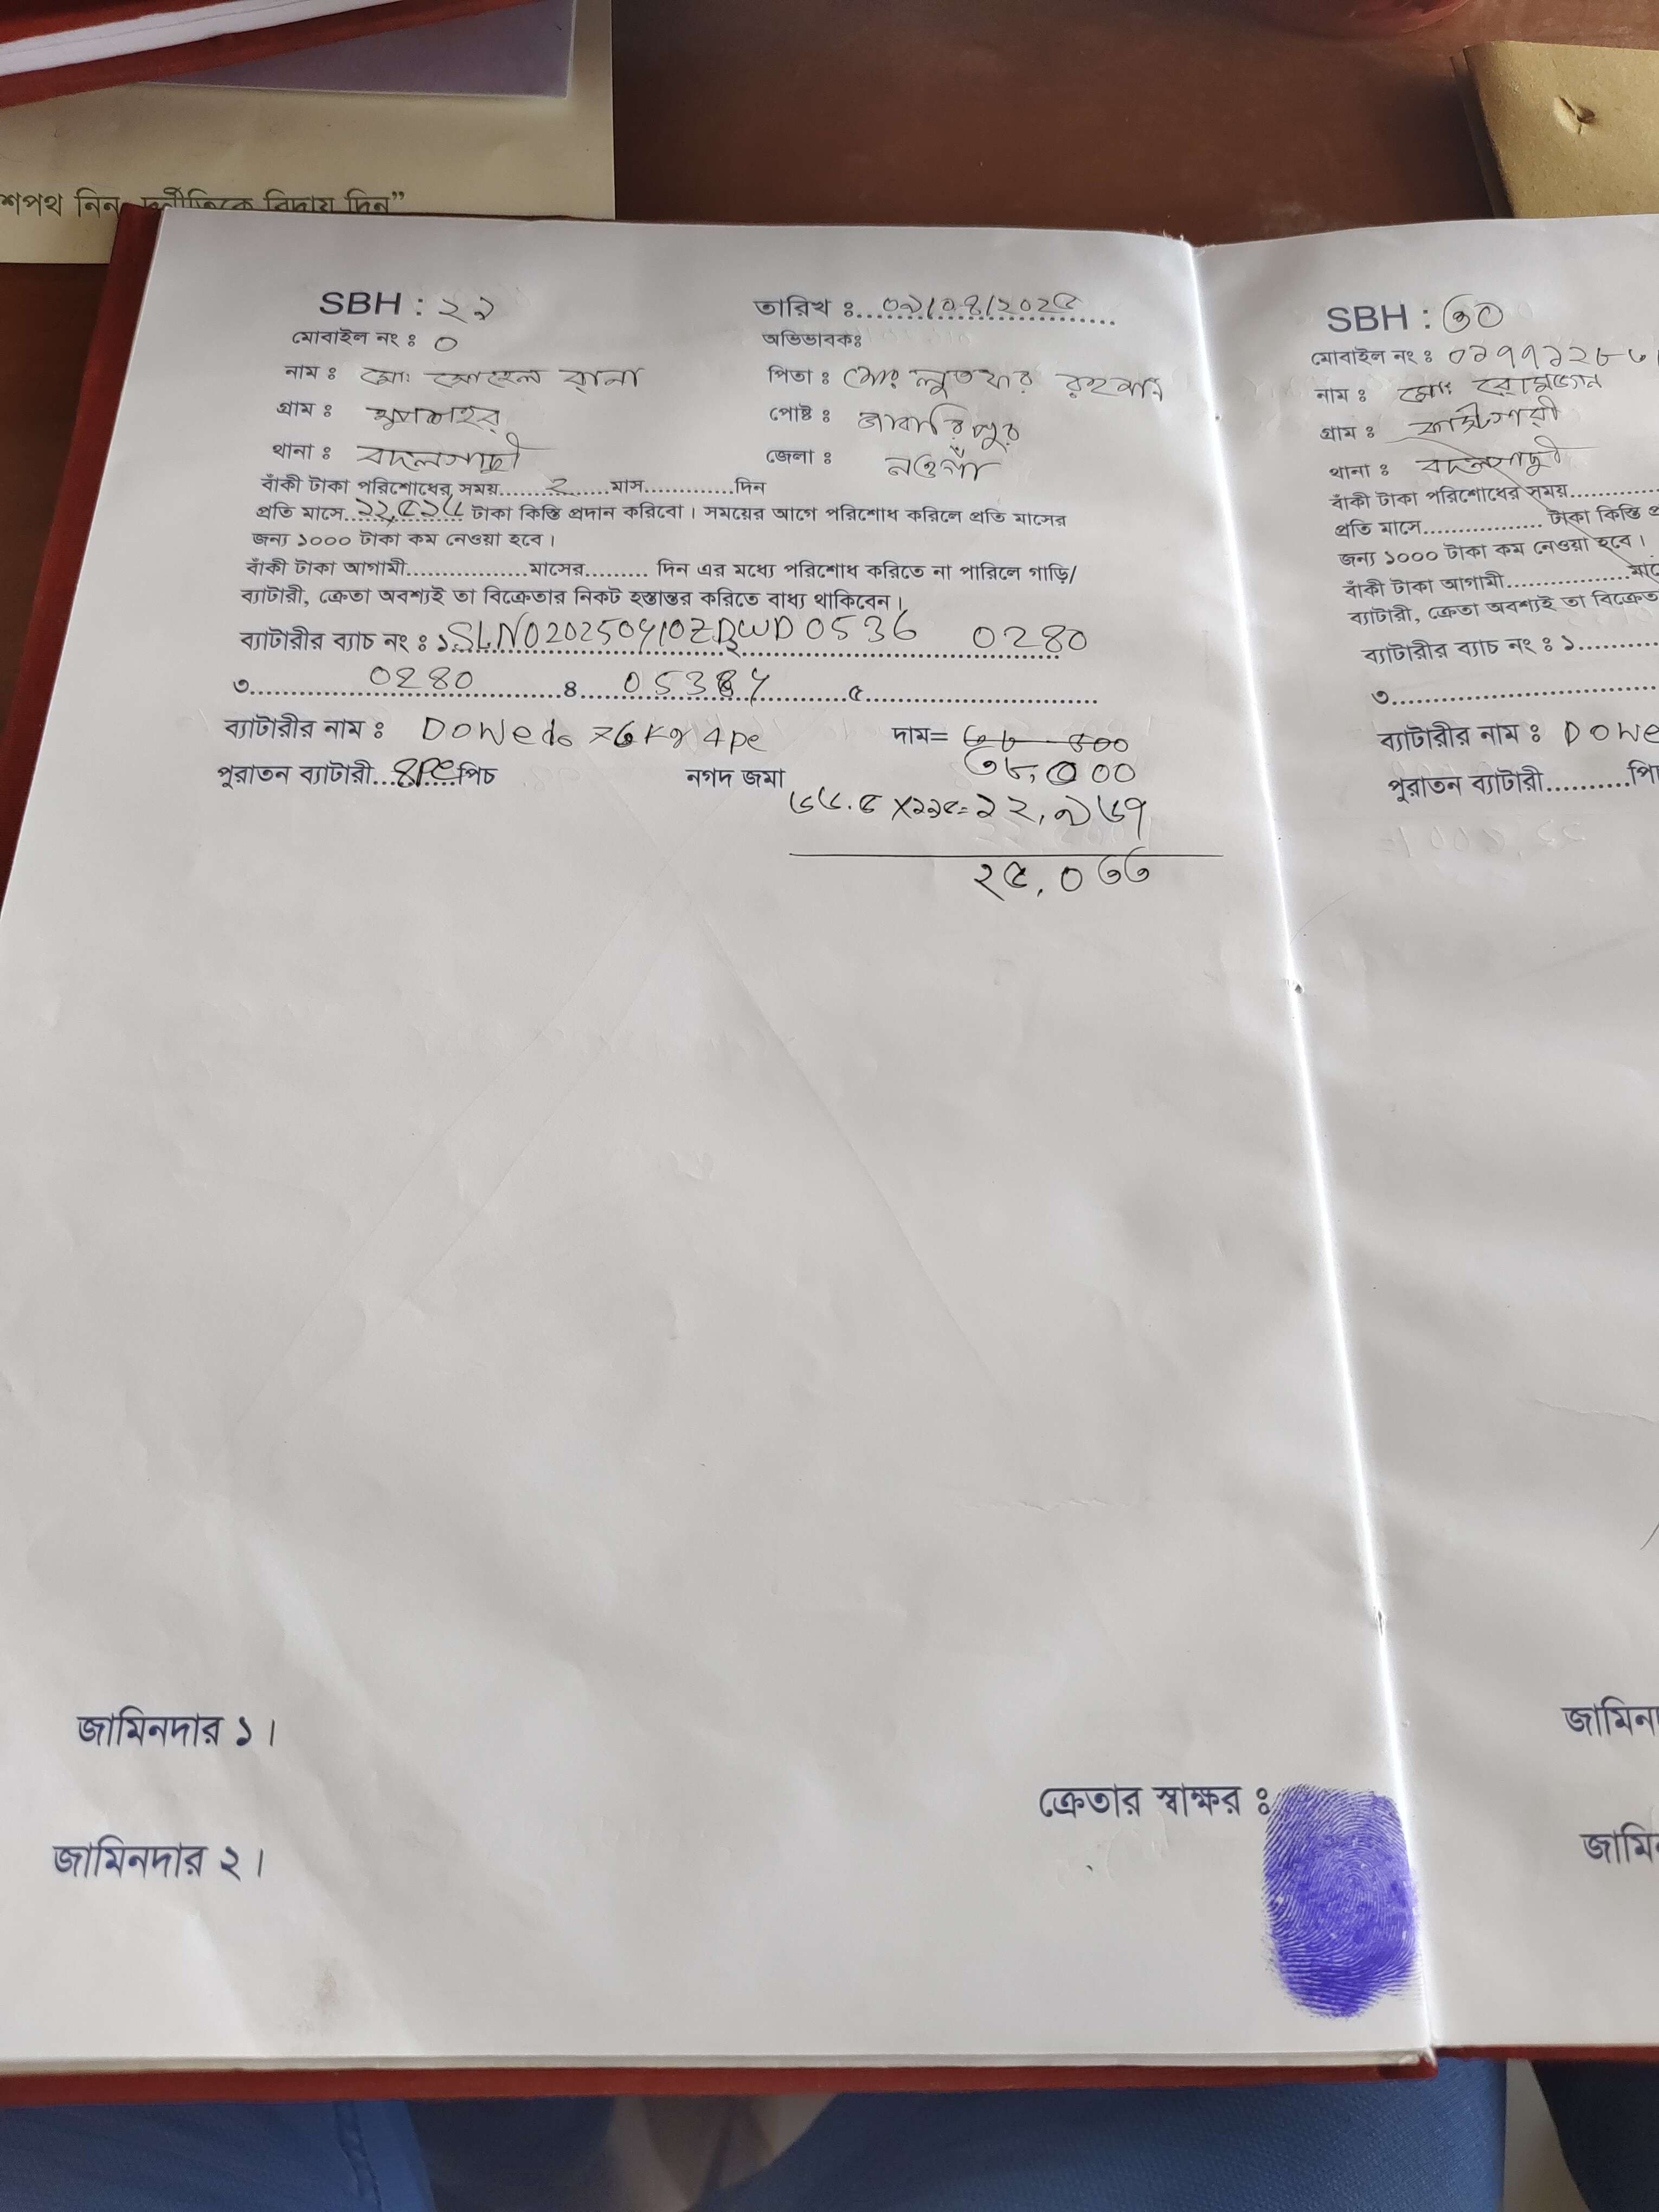 শপথ নিন, দুর্নীতিকে বিদায় দিন”
SBH : ২৯
তারিখ ঃ ০৯/০৪/২০২৫
মোবাইল নং ঃ ০
অভিভাবকঃ
নাম ঃ মোঃ সোহেল রানা
পিতা ঃ মোঃ লুতফর রহমান
গ্রাম ঃ
পোষ্ট ঃ জাবারিপুর
থানা ঃ বদলগাছী
জেলা ঃ নওগাঁ
বাঁকী টাকা পরিশোধের সময়.....২......মাস.............দিন
প্রতি মাসে..১২,৫১৬ টাকা কিস্তি প্রদান করিবো। সময়ের আগে পরিশোধ করিলে প্রতি মাসের
জন্য ১০০০ টাকা কম নেওয়া হবে।
বাঁকী টাকা আগামী.................মাসের......... দিন এর মধ্যে পরিশোধ করিতে না পারিলে গাড়ি/
ব্যাটারী, ক্রেতা অবশ্যই তা বিক্রেতার নিকট হস্তান্তর করিতে বাধ্য থাকিবেন।
ব্যাটারীর ব্যাচ নং ঃ ১ 0536 ২ 0280
৩ 0280 ৪ ৫
ব্যাটারীর নাম ঃ 4pe
দাম=
৩৮,০০০
পুরাতন ব্যাটারী...4pe পিচ
নগদ জমা
১২,৯৬৭
২৫,০৩৩
জামিনদার ১।
ক্রেতার স্বাক্ষর ঃ
জামিনদার ২।
SBH : ৩০
মোবাইল নং ঃ
নাম ঃ মোঃ
গ্রাম ঃ
থানা ঃ বদলগাছী
বাঁকী টাকা পরিশোধের সময়
প্রতি মাসে................ টাকা কিস্তি
জন্য ১০০০ টাকা কম নেওয়া হবে।
বাঁকী টাকা আগামী
ব্যাটারী, ক্রেতা অবশ্যই তা
ব্যাটারীর ব্যাচ নং ঃ ১
৩
ব্যাটারীর নাম ঃ
পুরাতন ব্যাটারী